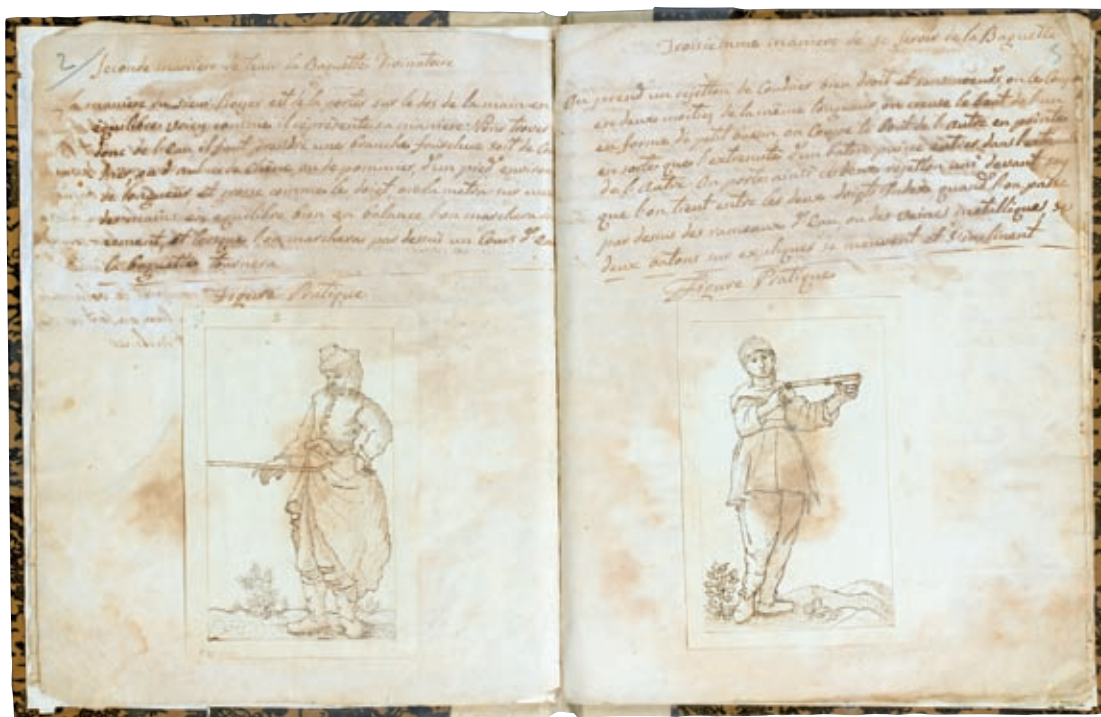 2/
Seconde maniere de tenir la Baguette Divinatoire
la maniere du sieur Royer est de la porter sur le dos de la main en
équilibre voicy comme il représente sa maniere. Pour trouver
donc de l'Eau il faut prendre une branche fourchue soit de
d'aune de chêne, ou de pommier, d'un pied environ
de longueur et grosse comme le doigt on la mettra sur une
de ses mains en equilibre bien en balance l'on marchera
et lorsque l'on marchera par dessus un Cours d'Eau
la baguette tournera
Figure Pratique
2
Troisiemme maniere de se servir de la Baguette
3
On prend un rejetton de Coudrier bien droit et sans noeuds on le coupe
en deux moitiez de la même longueur on creuse le bout de l'un
en forme de petit bassin on Coupe le bout de l'autre en pointe
en sorte que l'extremité d'un baton puisse entrer dans le
de l'autre On porte ainsi ces deux rejettons devant soy
que l'on tient entre les deux doigts Index quand l'on passe
par dessus des rameaux d'Eau, ou des veines metalliques, les
deux batons se meuvent et s'inclinent
Figure Pratique